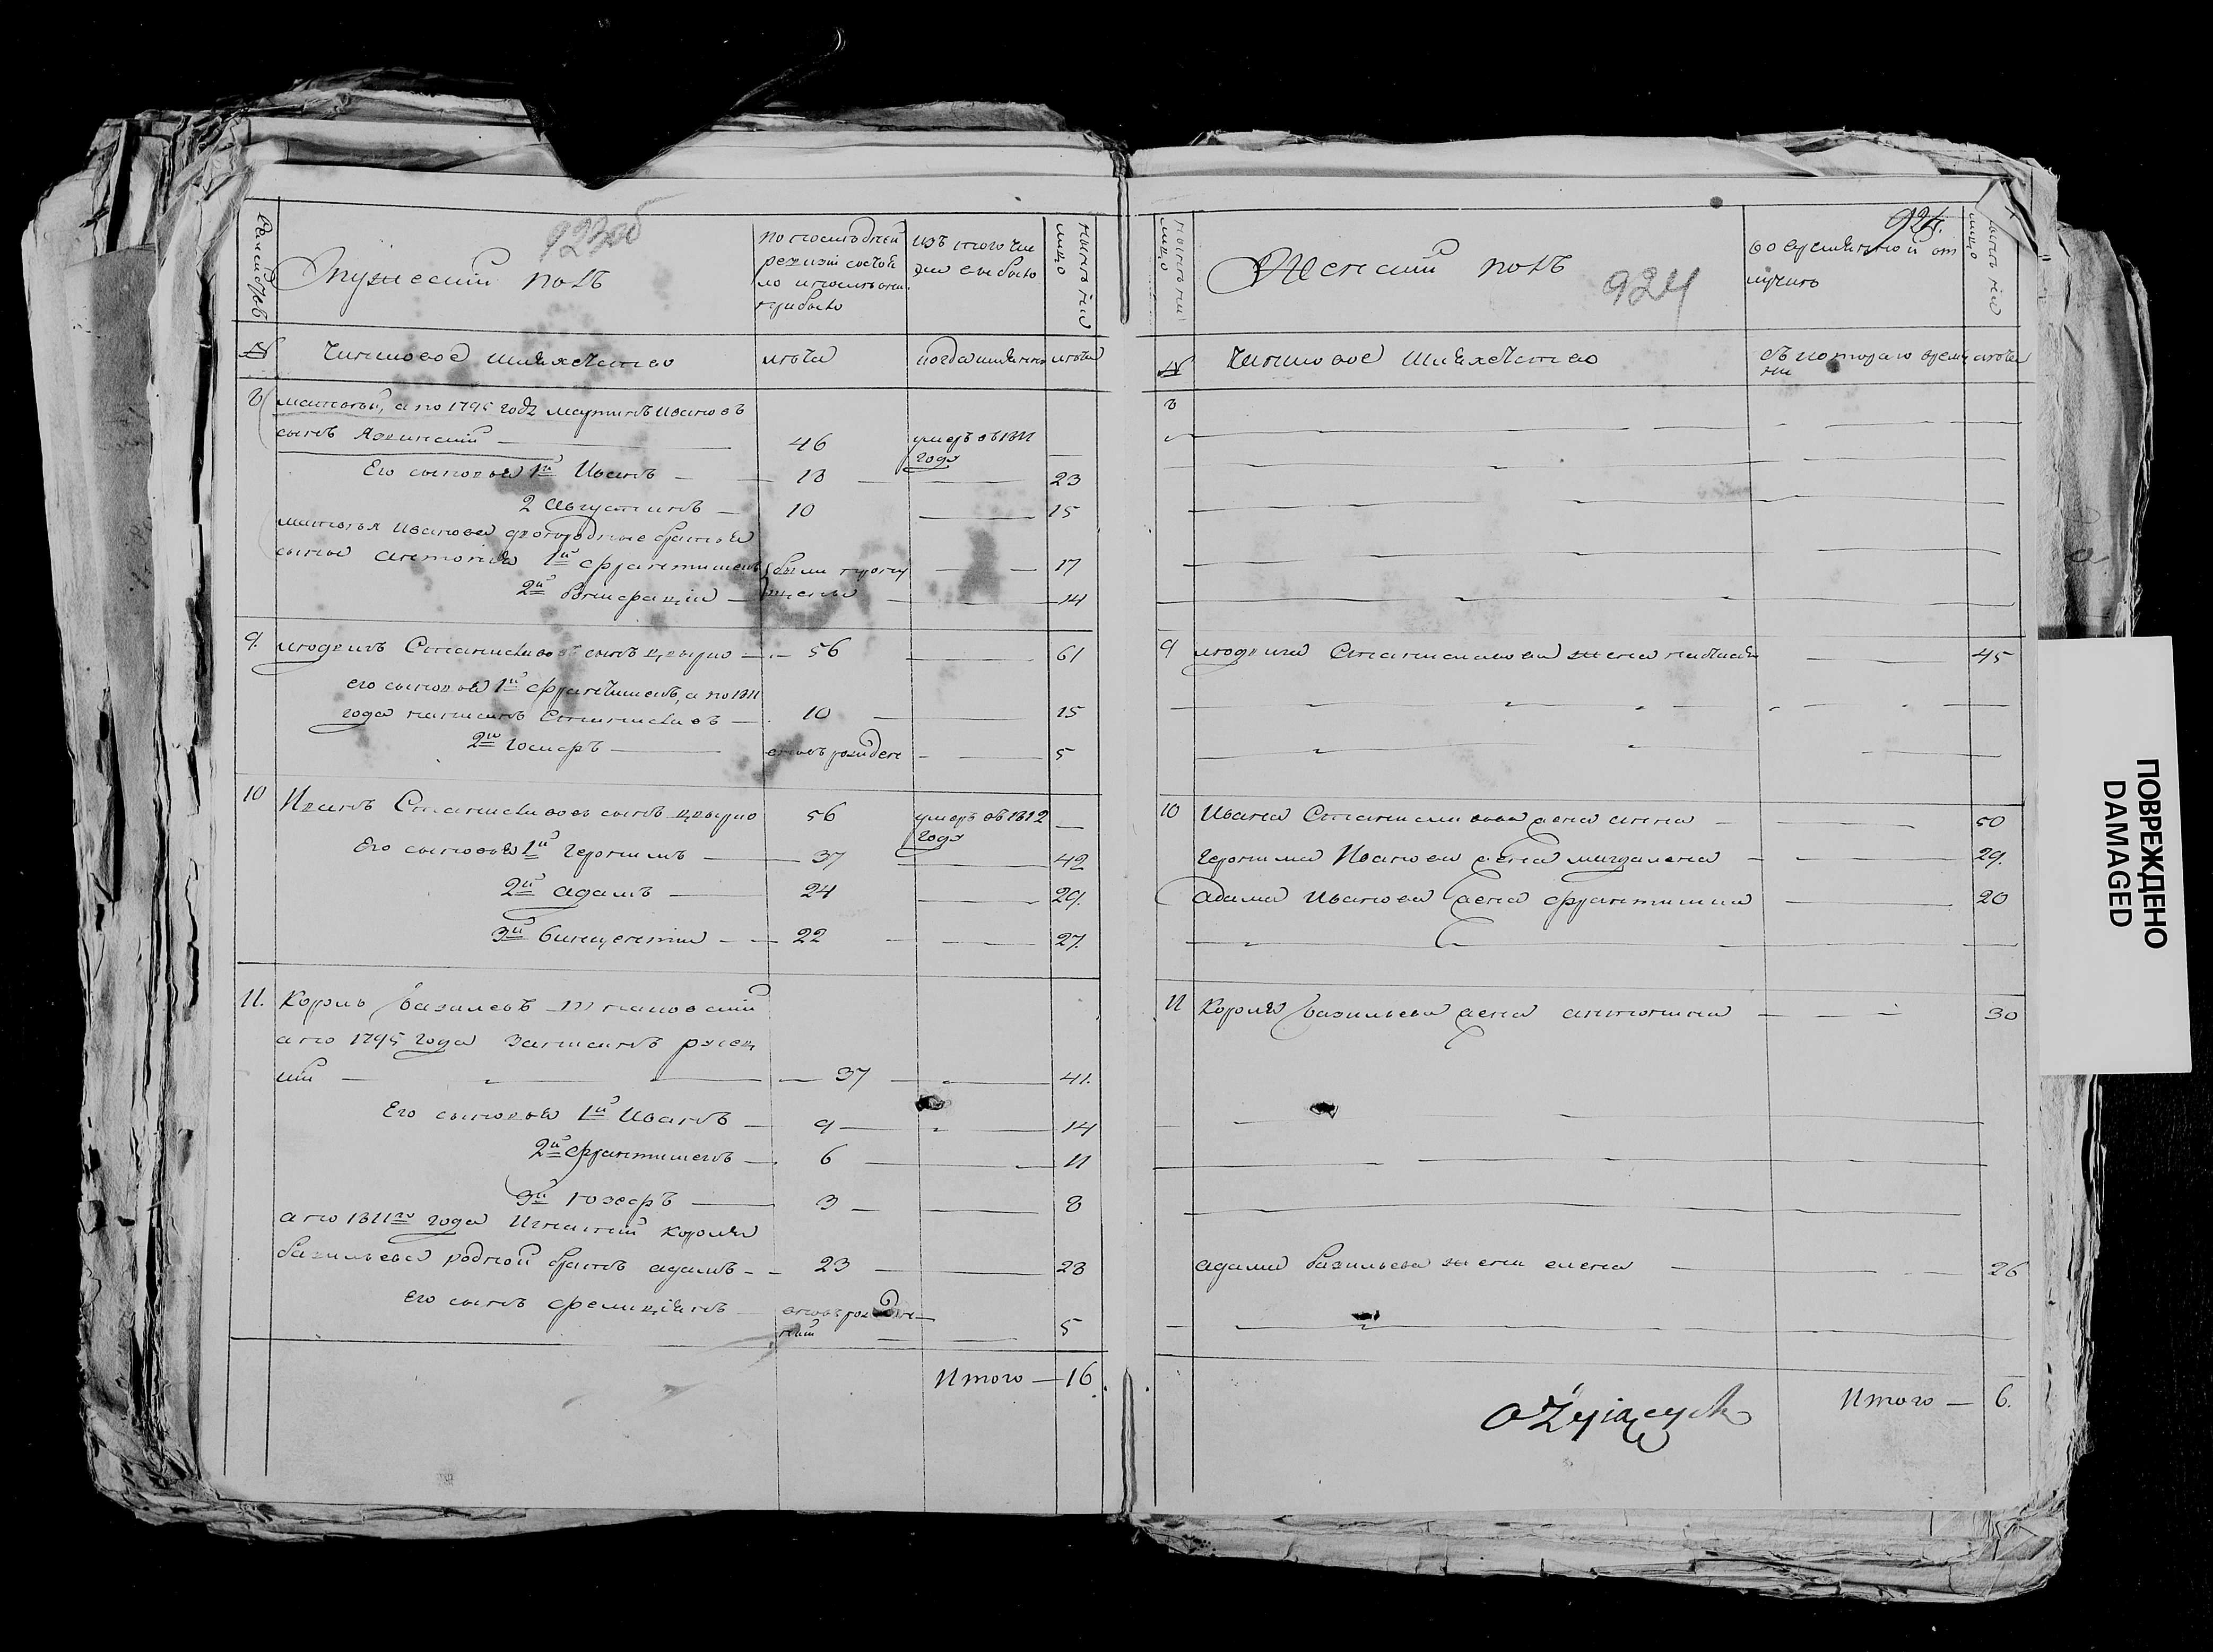 923об
Мужеский полъ
по последней
ревизіи состоя
ло и после оной
прибыло
изъ того чи
сла выбыло
ныне на
лицо
№
Чиншовое шляхетство
лета
когда именно
лета
8
Матеѣй, а по 1795 году Мартинъ Ивановъ
сынъ
46
умеръ въ 1811
году
Его сыновья 1й Иванъ
18
23
2 Августинъ
10
15
Матѣя Иванова двоюродные братья
сынья Антонія 1й Францишекъ
были пропу
17
2й Бонифацій
щены
14
9.
Людвигъ Станиславовъ сынъ Цвырко
56
61
его сыновья 1й Францишекъ, а по 1811
года написанъ Станиславъ
10
15
2й Іосифъ
вновь рожден
5
10
Иванъ Станиславовъ сынъ Цвырко
56
умеръ въ 1812
году
Его сыновья 1й Геронимъ
37
42
2й Адамъ
24
29.
3й Винцентий
22
27.
11.
Король Базилевъ
а по 1795 года записанъ
37
41.
Его сыновья 1й Иванъ
9
14
2й Францишекъ
6
11
3й Іозефъ
3
8
а по 1811го года Игнатий Короля
Базильева родной братъ Адамъ
23
28
Его сынъ Фелиціянъ
вновь рожде
ний
5
Итого — 16.
924.
Женский полъ
924
во временной от
лучкѣ
ныне на
лицо
№
Чиншовое шляхетство
съ котораго време
ни
лета
8
9
Людвига Станиславова жена
45
10
Ивана Станиславова жена Анна
50
Геронима Иванова жена Магдалена
29.
Адама Иванова жена Францишка
20
11
Короля Базильева жена Антонина
30
Адама Базильева жена Елена
26
Итого — 6.
ПОВРЕЖДЕНО
DAMAGED